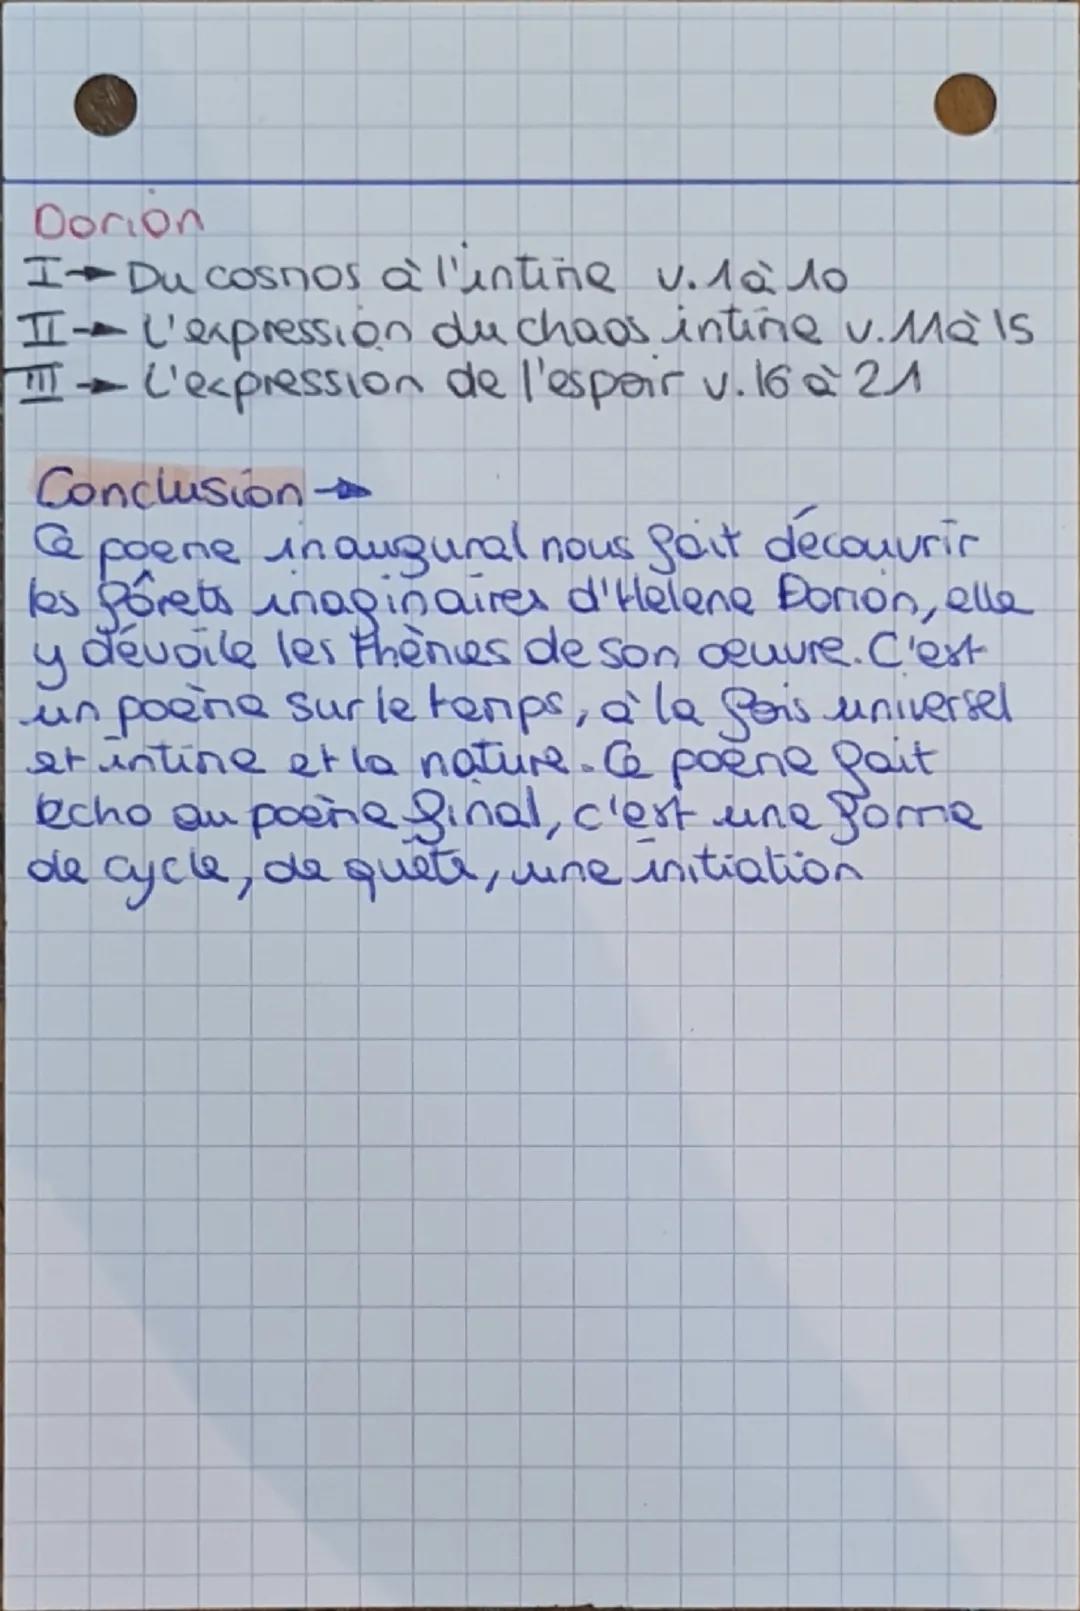 Dorion
I → Du cosmos à l'intime v. 1 à 10
II → L'expression du chaos intime v. 11 à 15
III → L'expression de l'espoir v. 16 à 21
Conclusion →
Ce poeme inaugural nous fait découvrir
les fôrets imaginaires d'Helene Dorion, elle
y dévoile les thèmes de son œuvre. C'est
un poème sur le temps, à la fois universel
et intime et la nature. Ce poème fait
echo au poème final, c'est une forme
de cycle, de quête, une initiation